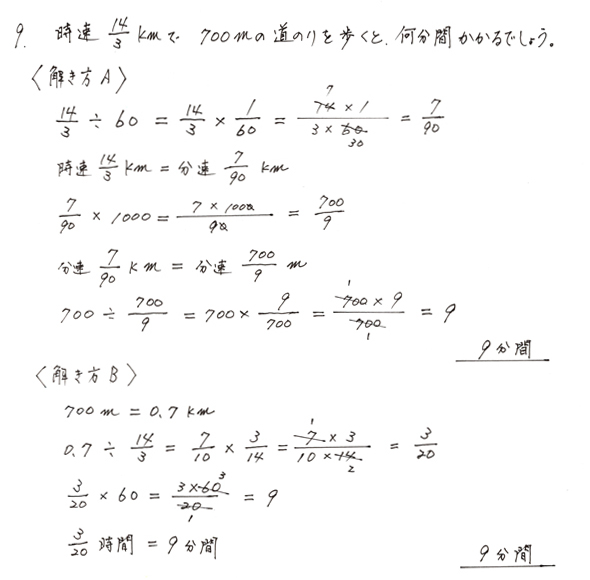 9. 時速 14/3 kmで 700mの道のりを歩くと、何分間かかるでしょう。
〈解き方A〉
14/3 ÷ 60 = 14/3 × 1/60 = (14 × 1)/(3 × 60) 7 30 = 7/90
時速 14/3 km = 分速 7/90 km
7/90 × 1000 = (7 × 1000)/90 = 700/9
分速 7/90 km = 分速 700/9 m
700 ÷ 700/9 = 700 × 9/700 = (700 × 9)/700 1 1 = 9
9分間
〈解き方B〉
700m = 0.7km
0.7 ÷ 14/3 = 7/10 × 3/14 = (7 × 3)/(10 × 14) 1 2 = 3/20
3/20 × 60 = (3 × 60)/20 3 1 = 9
3/20 時間 = 9分間
9分間